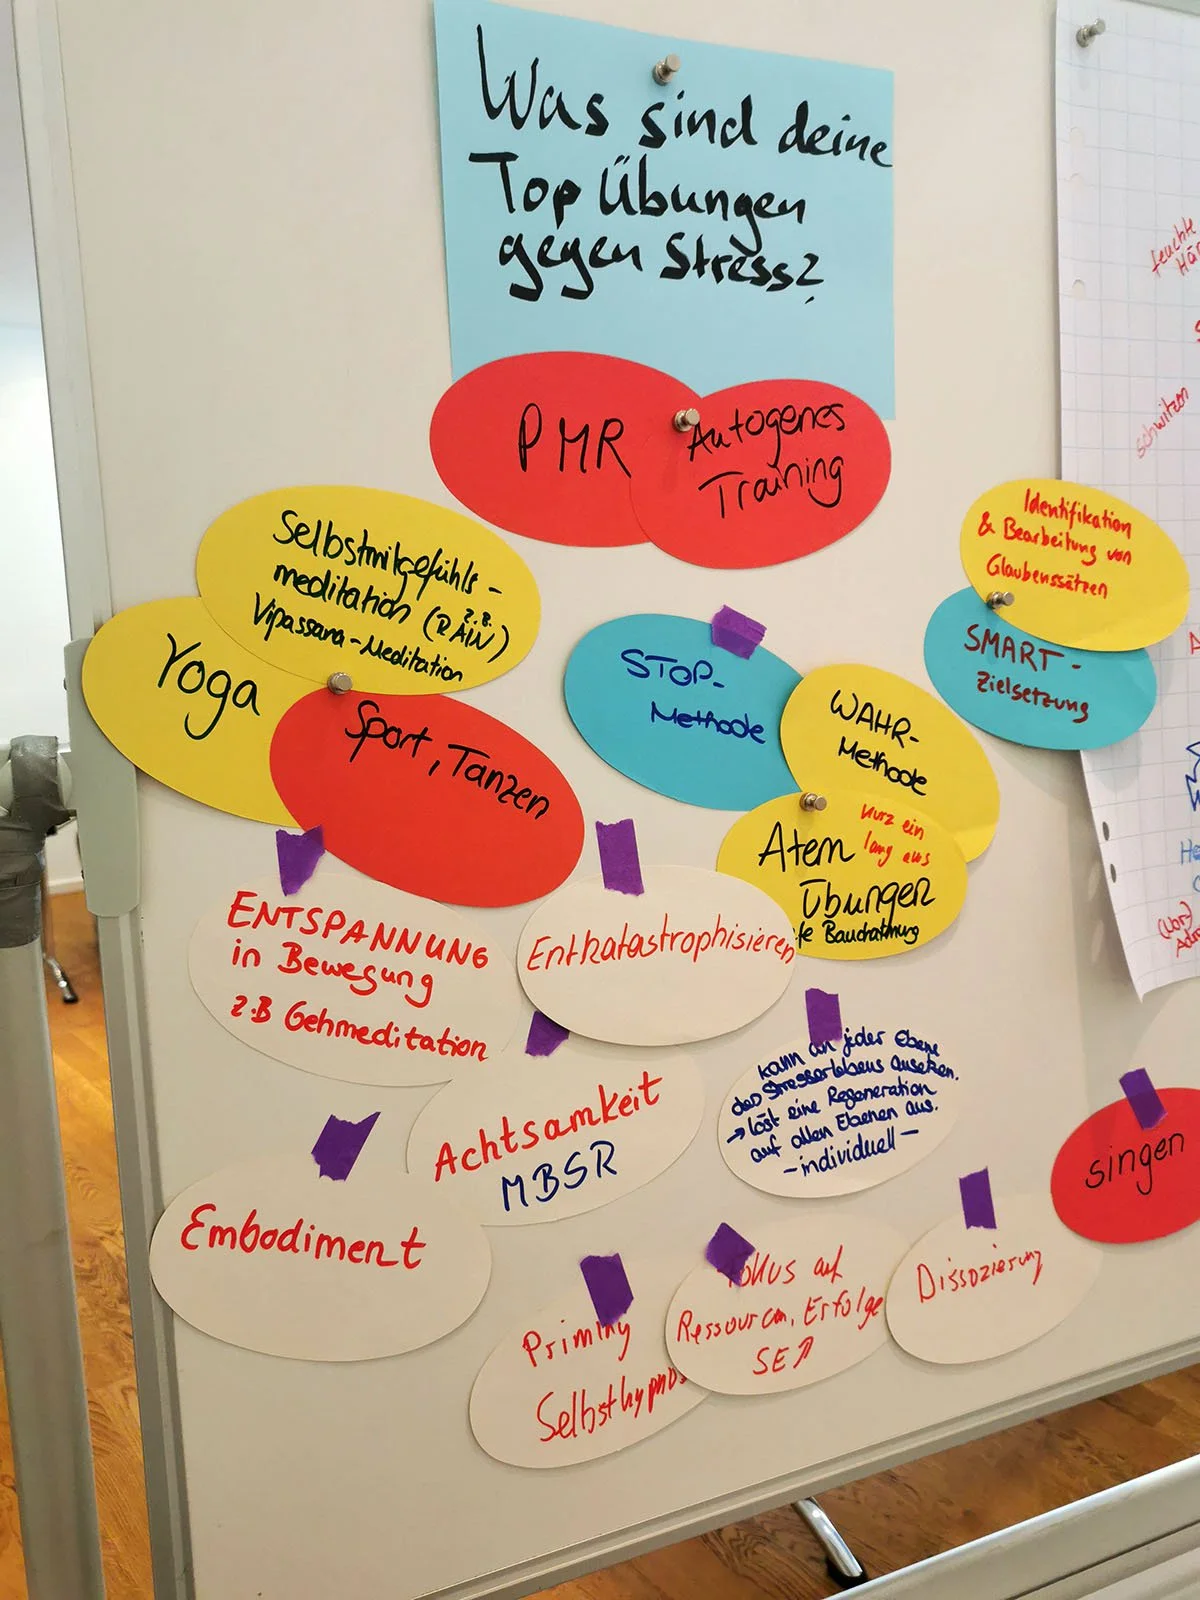 Was sind deine
Top Übungen
gegen Stress?
PMR
Autogenes
Training
Selbstmitgefühls-
meditation (z.B. RAIN)
Vipassana-Meditation
Yoga
Sport, Tanzen
STOP-
Methode
WAHR-
Methode
Atem
Übungen
kurz ein
lang aus
Bauchatmung
Identifikation
& Bearbeitung von
Glaubenssätzen
SMART-
Zielsetzung
ENTSPANNUNG
in Bewegung
z.B Gehmeditation
Entkatastrophisieren
Achtsamkeit
MBSR
kann an jeder Ebene
des Stresserlebens ansetzen.
→ löst eine Regeneration
auf allen Ebenen aus.
- individuell -
singen
Embodiment
Priming
Selbsthypnos
Fokus auf
Ressourcen, Erfolge
SE↗
Dissoziierung
feuchte
Hän
schwitzen